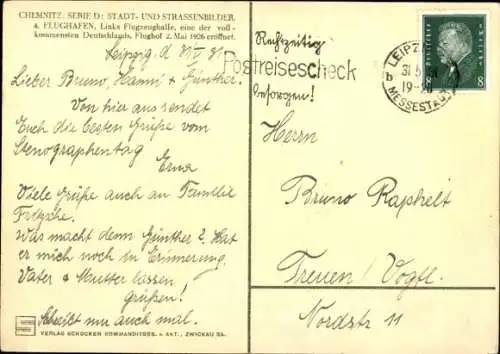 CHEMNITZ: SERIE D: STADT- UND STRASSENBILDER.
4. FLUGHAFEN, Links Flugzeughalle, eine der voll-
kommensten Deutschlands, Flughof 2. Mai 1926 eröffnet.
Leipzig d 31/V 31
Lieber Bruno, Hanni & Günther!
Von hier aus sendet
Euch die besten Grüße vom
Stenographentag
Erna
Viele Grüße auch an Familie
Fritzsche.
Was macht denn Günther? Hat
er mich noch in Erinnerung.
Vater & Mutter lassen
grüßen!
Schreibt nur auch mal.
VERLAG SCHOCKEN KOMMANDITGES. a. AKT., ZWICKAU SA.
Rechtzeitig
Postreisescheck
besorgen!
LEIPZIG
b
31.5.
19-20
MESSESTADT
8
Herrn
Bruno Raphelt
Treuen / Vogtl.
Nordstr 11